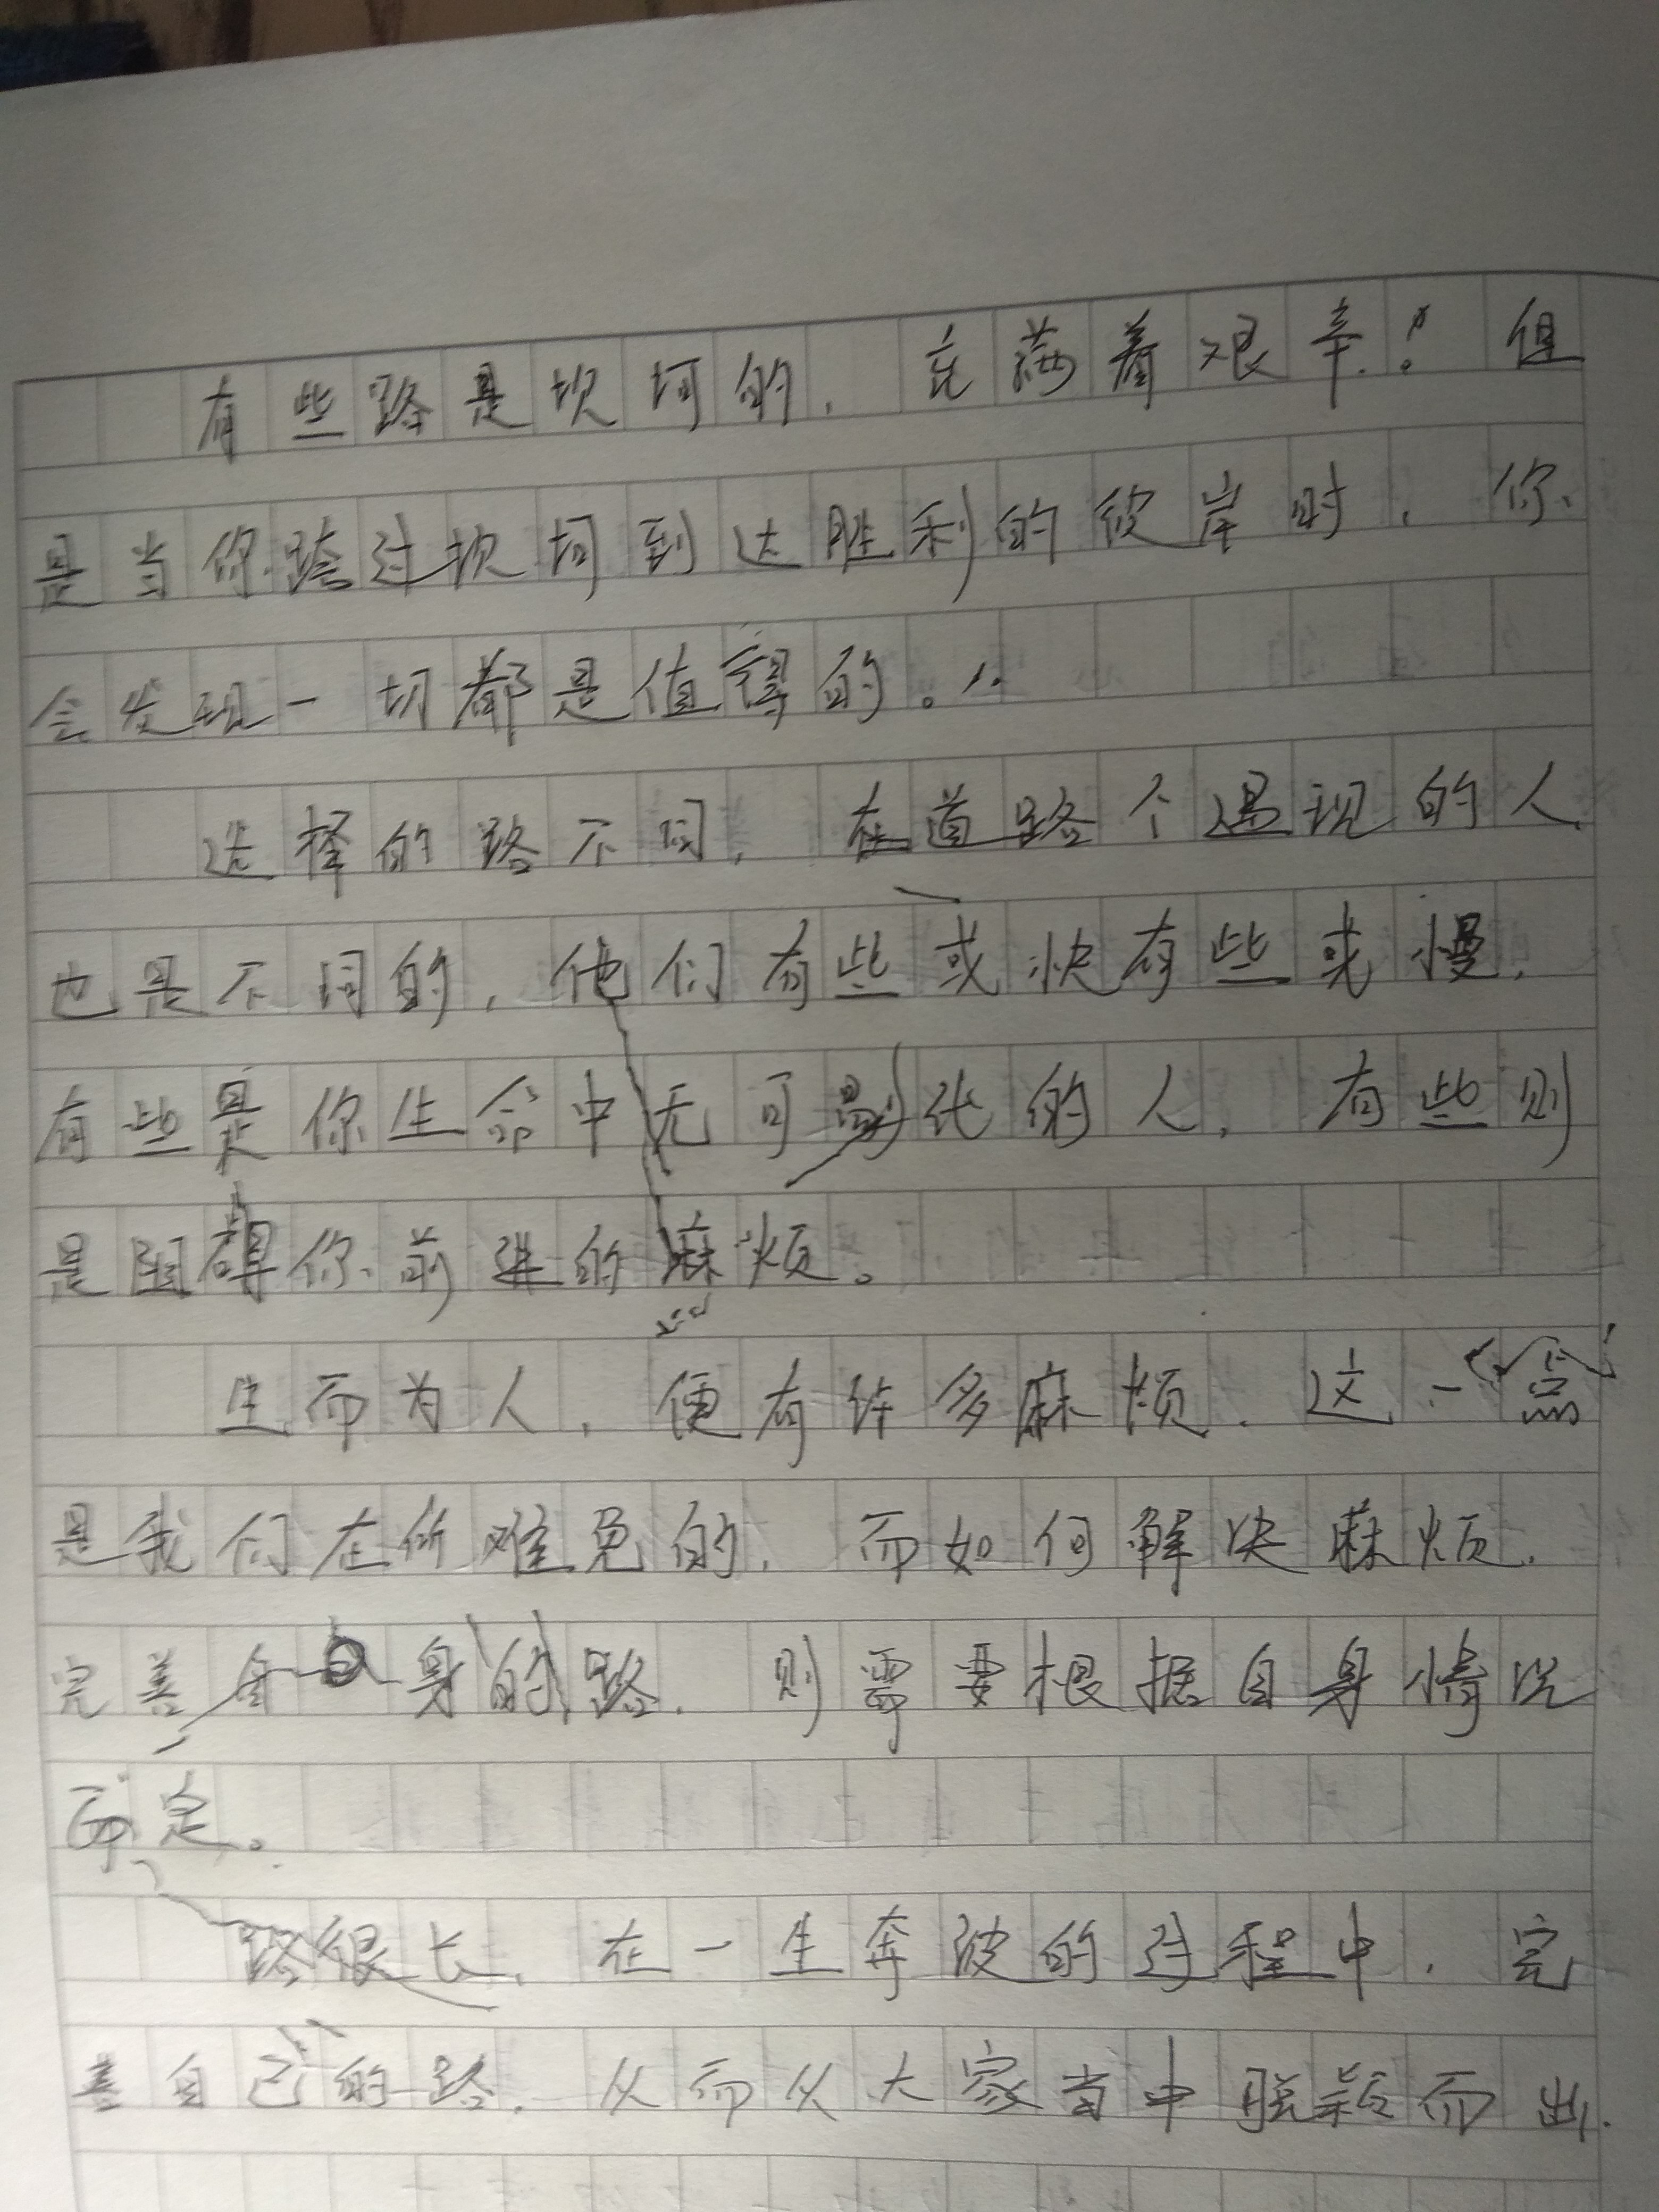 有些路是坎坷的，充满着艰辛。但
是当你跨过坎坷到达胜利的彼岸时，你
会发现一切都是值得的。
选择的路不同，在道路个遇现的人
也是不同的，他们有些或快有些或慢，
有些是你生命中无可化的人，有些则
是阻碍你前进的麻烦。
生而为人，便有许多麻烦，这一点
是我们在所难免的，而如何解决麻烦，
完善自身的路，则需要根据自身情况
而定。
路很长，在一生奔波的过程中，完
善自己的路，从而从大家当中脱颖而出，